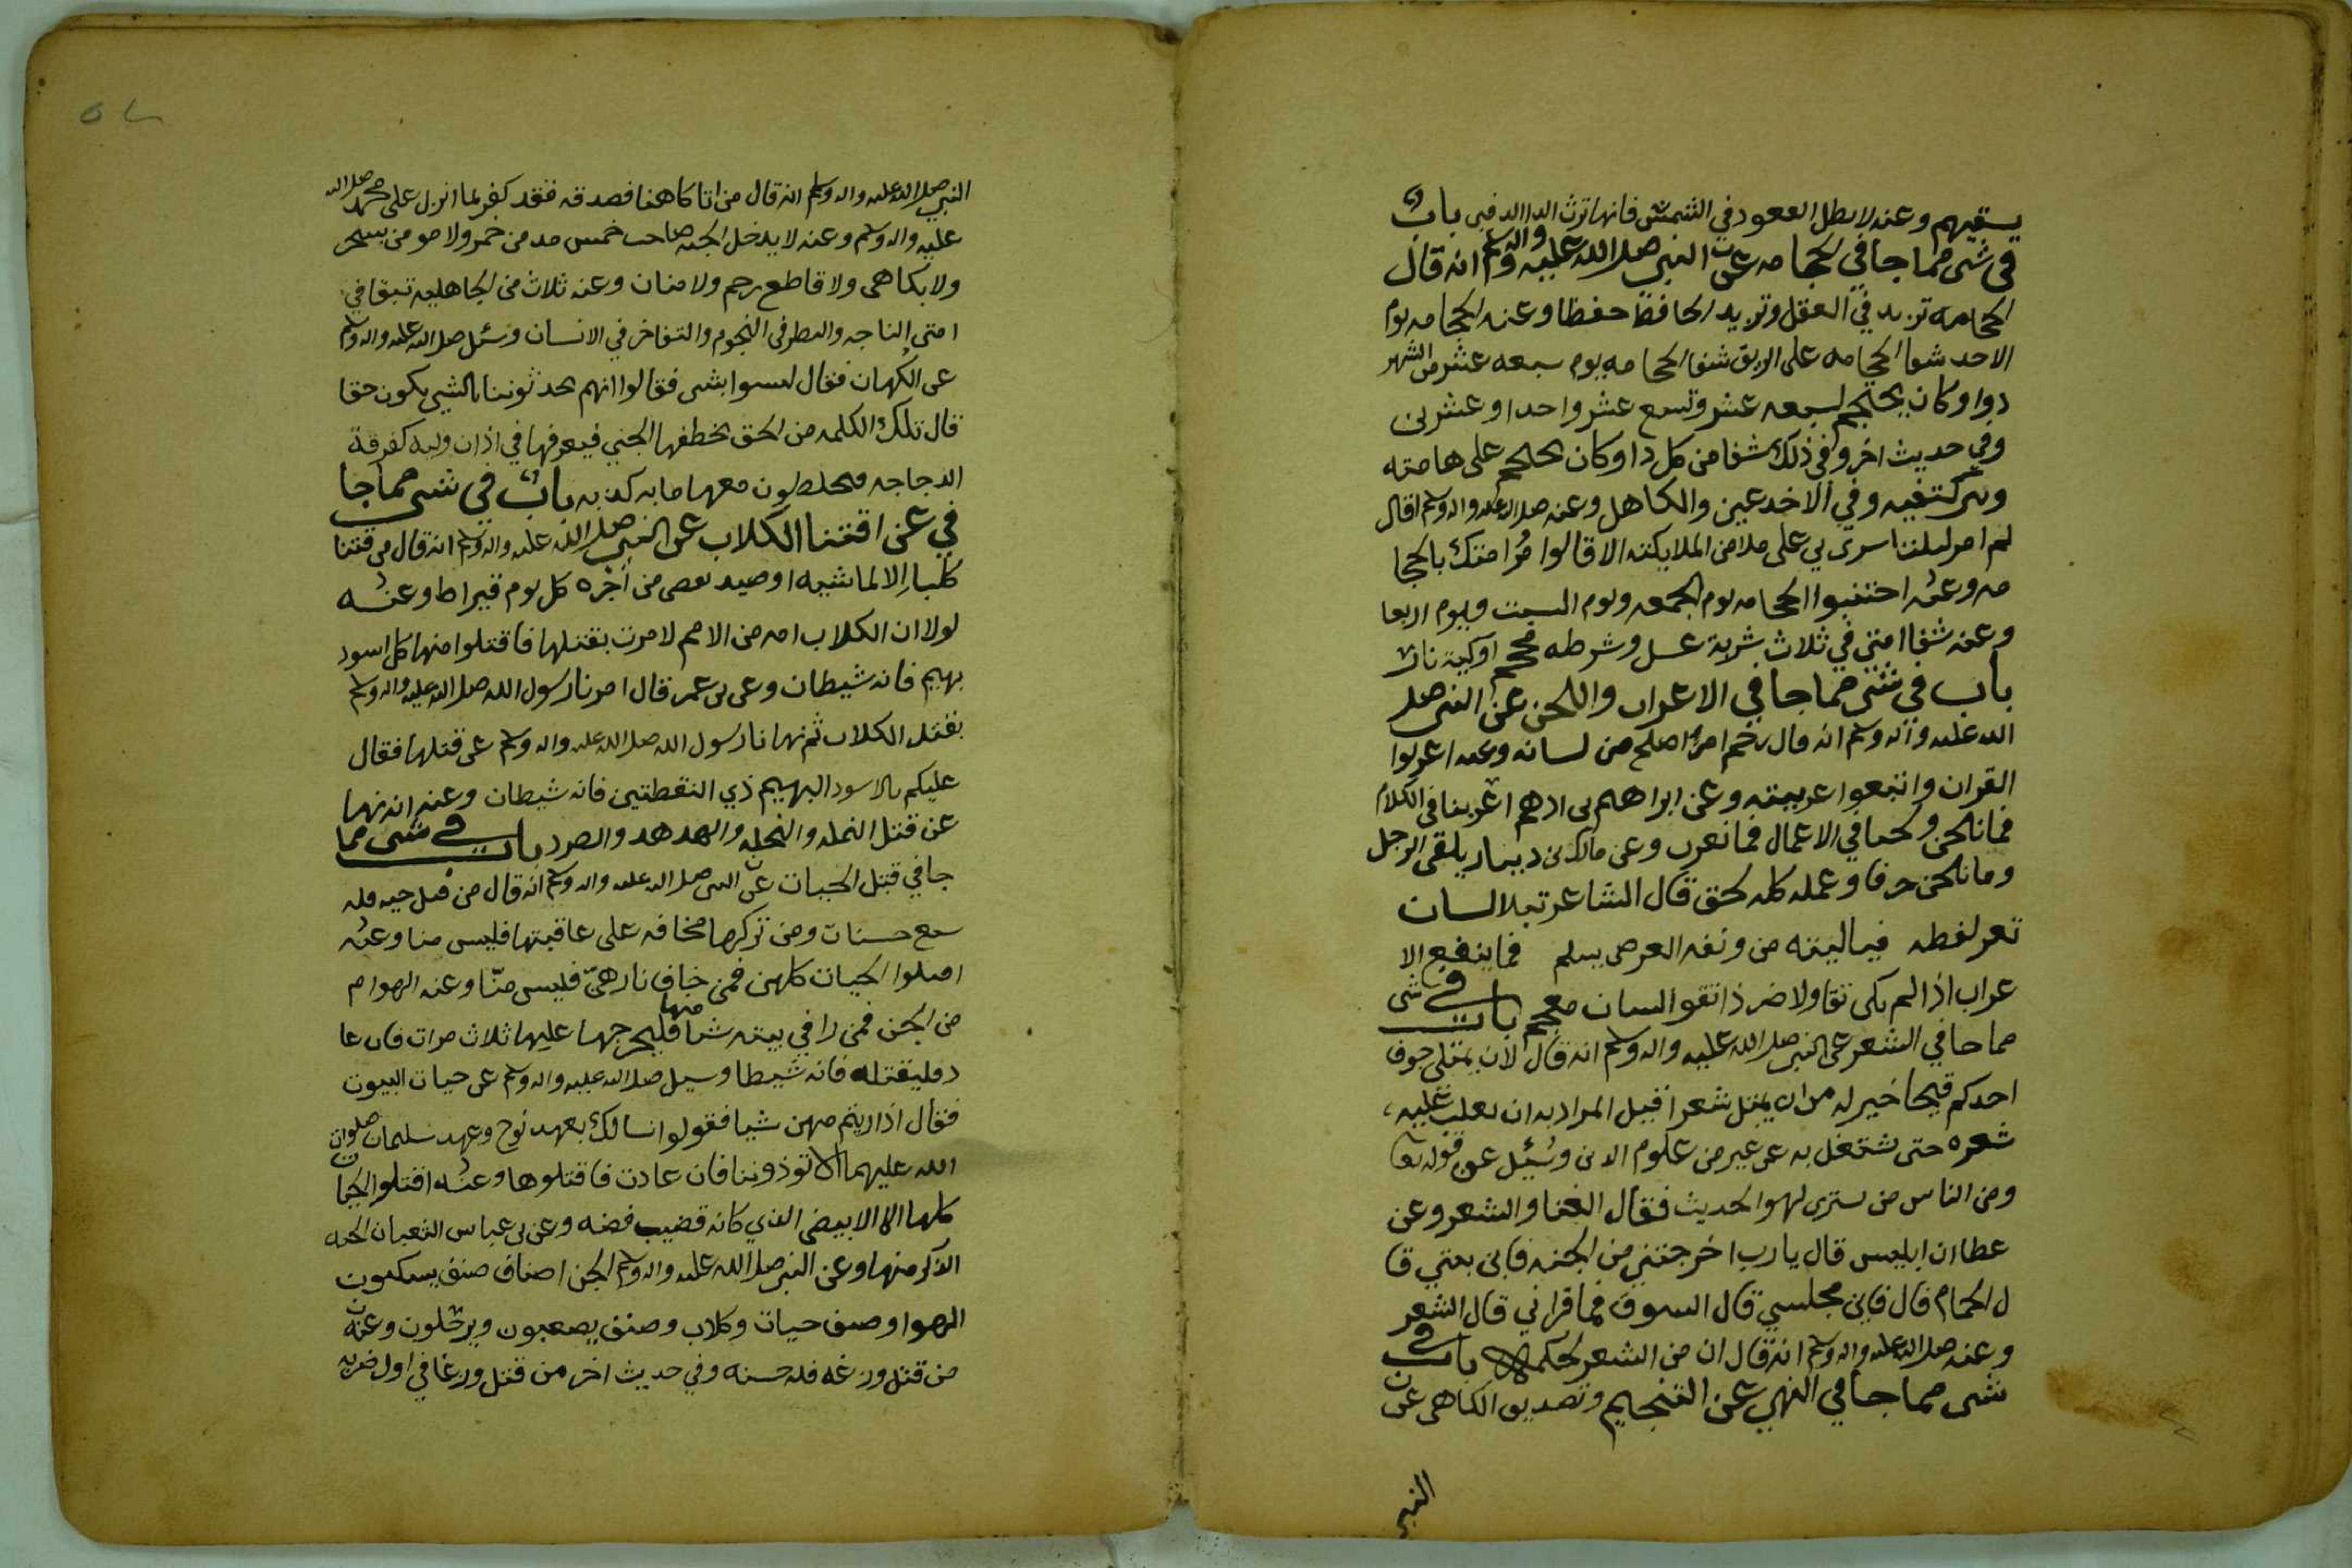 يسقيهم وعنه لا يطل القعود في الشمس فانها ترث الدا الدفين باب
في شي مما جا في الحجامه عن النبي صلى الله عليه واله وسلم انه قال
الحجامه تزيد في العقل وتزيد الحافظ حفظا وعنه الحجامه يوم
الاحد شفا الحجامه على الريق شفا الحجامه يوم سبعه عشر من الشهر
دوا وكان يحتجم لسبعه عشر وتسع عشر واحدا وعشرين
وفي حديث اخر وفي ذلك شفا من كل دا وكان يحتجم على هامته
وبين كتفيه وفي الاخدعين والكاهل وعنه صلى الله عليه واله وسلم اقال
لم امر ليلتنا سري بي على ملا من الملايكته الا قالوا مُر امتك بالحجا
مه وعنه اجتنبوا الحجامه يوم الجمعه ويوم السبت ويوم اربعا
وعنه شفا امتي في ثلاث شربة عسل وشرطه محجم اوكية نار
باب في شي مما جا في الاعراب واللحن عن النبي صلى
الله عليه واله وسلم انه قال رحم امرا اصلح من لسانه وعنه اعربوا
القران واتبعوا عربيته وعن ابراهيم بن ادهم اعربنا في الكلام
فما نلحن ولحنا في الاعمال فما نعرب وعن مالك بن دينار يلقى الرجل
وما نلحن حرفا وعمله كله لحق قال الشاعر تبلا لسان
تعر لفظه فياليته من وقفه العرض يسلم فما ينفع الا
عراب اذا لم يكن تقا ولا ضر ذا تقوا لسان معجم باب في شي
مما جا في الشعر عن النبي صلى الله عليه واله وسلم انه قال لان يمتلي جوف
احدكم قيحا خير له من ان يمتل شعرا قيل المراد به ان يغلب عليه
شعره حتى شتغل به عن غير من علوم الدين وسُئِل عن قوله تعا
ومن الناس من يشتري لهو الحديث فقال الغنا والشعر وعن
عطا ان ابليس قال يارب اخرجتني من الجنه فاين بيتي قا
ل الحمام قال فاين مجلسي قال السوق فما قراني قال الشعر
وعنه صلى الله عليه واله وسلم انه قال ان من الشعر لحكما باب في
شي مما جا في النهي عن التنجيم وتصديق الكاهن عن
النبي
النبي صلى الله عليه واله وسلم انه قال من اتا كاهنا فصدقه فقد كفر بما انزل على محمد صلى الله
عليه واله وسلم وعنه لا يدخل الجنه صاحب خمس مدمن خمر ولا مومن بسحر
ولا بكاهن ولا قاطع رحم ولا منان وعنه ثلاث من الجاهليه تبقا في
امتي الناجه والنظر في النجوم والتفاخر في الانسان وسئل صلى الله عليه واله وسلم
عن الكهان فقال ليسوا بشي فقالوا انهم يحدثوننا بالشي يكون حقا
قال تلك الكلمه من الحق يخطفها الجني فيعرفها في اذان وليه كفرقة
الدجاجه فيخلطون معها مايه كذبه باب في شي مما جا
في عن اقتنا الكلاب عن النبي صلى الله عليه واله وسلم انه قال من قتنا
كلبا الا لماشيه اوصيد نقص من اجره كل يوم قيراط وعنه
لولا ان الكلاب امه من الامم لامرت بقتلها فاقتلوا منها كل اسود
بهيم فانه شيطان وعن بن عمر قال امرنا رسول الله صلى الله عليه واله وسلم
بقتل الكلاب ثم نهانا رسول الله صلى الله عليه واله وسلم عن قتلها فقال
عليكم بالاسود البهيم ذي النقطتين فانه شيطان وعنه انه نها
عن قتل النمله والنحله والهدهد والصرد باب في شي مما
جا في قتل الحيات عن النبي صلى الله عليه واله وسلم انه قال من قتل حيه فله
سبع حسنات ومن تركها مخافه على عاقبتها فليس منا وعنه
اقتلوا الحيات كلهن فمن خاف نارهن فليس منّا وعنه الهوام
من الجن فمن را في بيته شيا منها فليحرجها عليها ثلاث مرات فان عا
د فليقتله فانه شيطا وسيل صلى الله عليه واله وسلم عن حيات البيوت
فقال اذا ريتم منهن شيا فقولوا انسالك بعهد نوح وعهد سليمان صلوات
الله عليهما الا توذوننا فان عادت فاقتلوها وعنه اقتلوا الحيات
كلها الا الابيض الذي كانه قضيب فضه وعن بن عباس الثعبان الحيه
الذكر منها وعن النبي صلى الله عليه واله وسلم الجن اصناف صنف يسكنون
الهوا وصنف حيات وكلاب وصنف يصعبون ويرحلون وعنه
من قتل وزغه فله حسنه وفي حديث اخر من قتل وزغا في اول ضربه